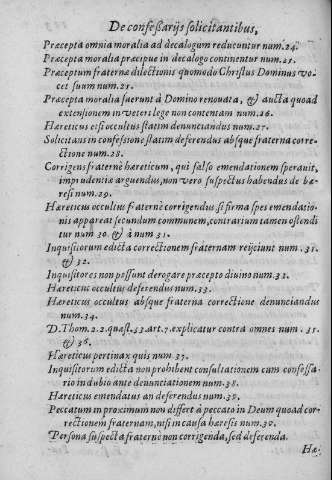 De confeßarijs solicitantibus,
Præcepta omnia moralia ad decalogum reducuntur num.24.
Præcepta moralia præcipue in decalogo continentur num.25.
Præceptum fraternæ dilectionis quomodo Christus Dominus vo-
cet suum num.25.
Præcepta moralia fuerunt à Domino renouata, & aucta quoad
extensionem in veteri lege non contentam num.26.
Hæreticus etsi occultus statim denunciandus num.27.
Solicitans in confesione statim deferendus absque fraterna corre-
ctione num.28.
Corrigens fraternè hæreticum, qui falso emendationem sperauit,
imprudentiæ arguendus, non vero suspectus habendus de hæ-
resi num.29.
Hæreticus occultus fraternè corrigendus si firma spes emendatio-
nis appareat secundum communem, contrarium tamen ostendi
tur num 30. & à num 31.
Inquisitorum edicta correctionem fraternam reijciunt num. 31.
& 32.
Inquisitores non possunt derogare præcepto diuino num.32.
Hæreticus occultus deferendus num.33.
Hæreticus occultus absque fraterna correctione denunciandus
num.34.
D.Thom.2.2.quæst.33.art.7.explicatur contra omnes num. 35.
& 36.
Hæreticus pertinax quis num 37.
Inquisitorum edicta non prohibent consultationem cum confessa-
rio in dubio ante denunciationem num.38.
Hæreticus emendatus an deferendus num.39.
Peccatum in proximum non differt à peccato in Deum quoad cor-
rectionem fraternam, nisi in causa hæresis num.30.
Persona suspecta fraternè non corrigenda, sed deferenda.
Hæ-